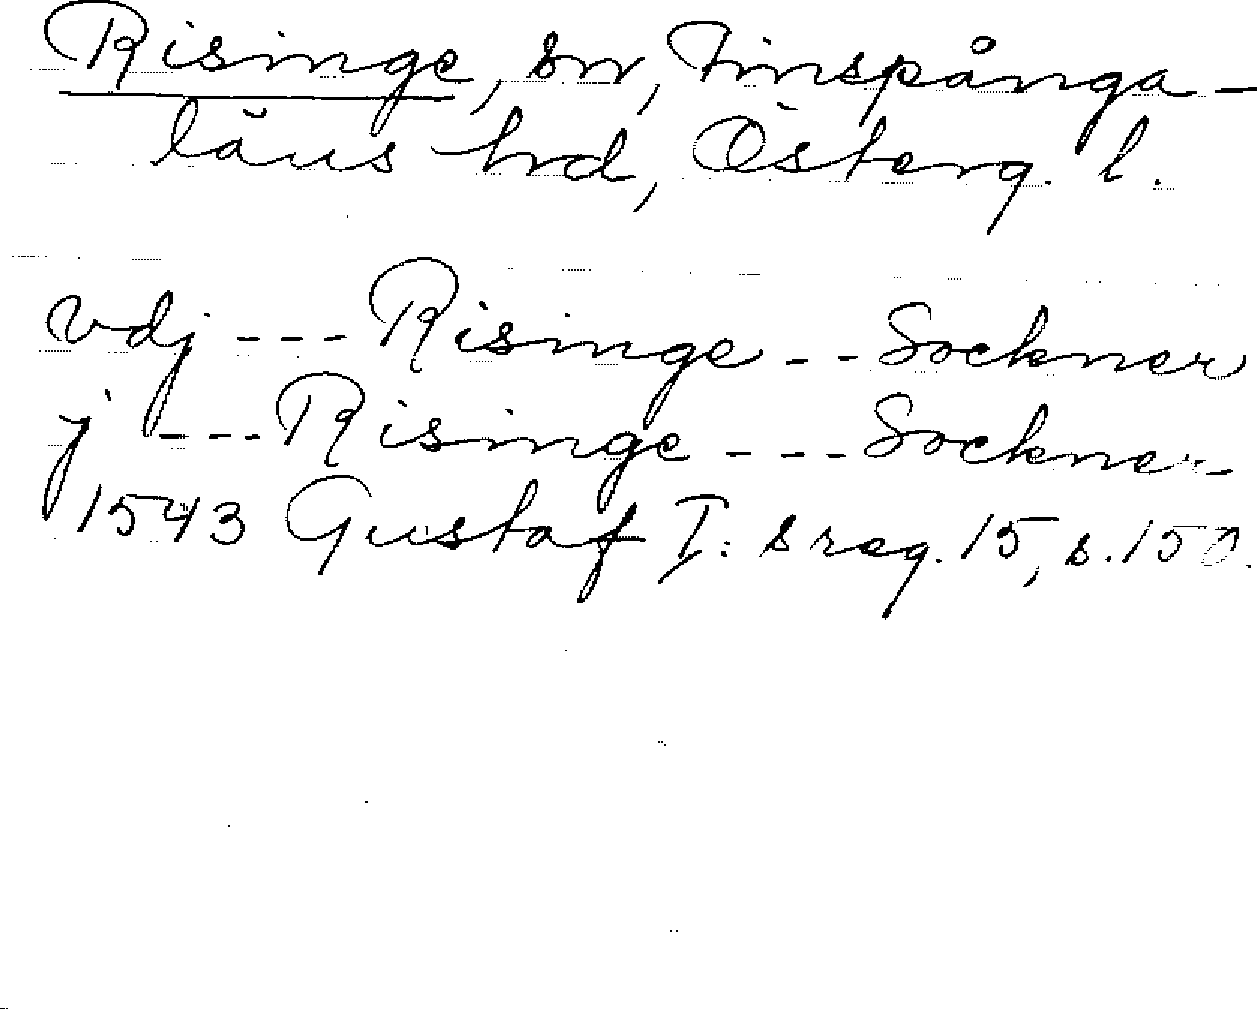 Risinge, sn, Finspånga-
läns hrd, Österg. l.
Vdj --- Risinge -- Sockner
j --- Risinge --- Sockner-
1543 Gustaf I:s reg. 15, s. 150.